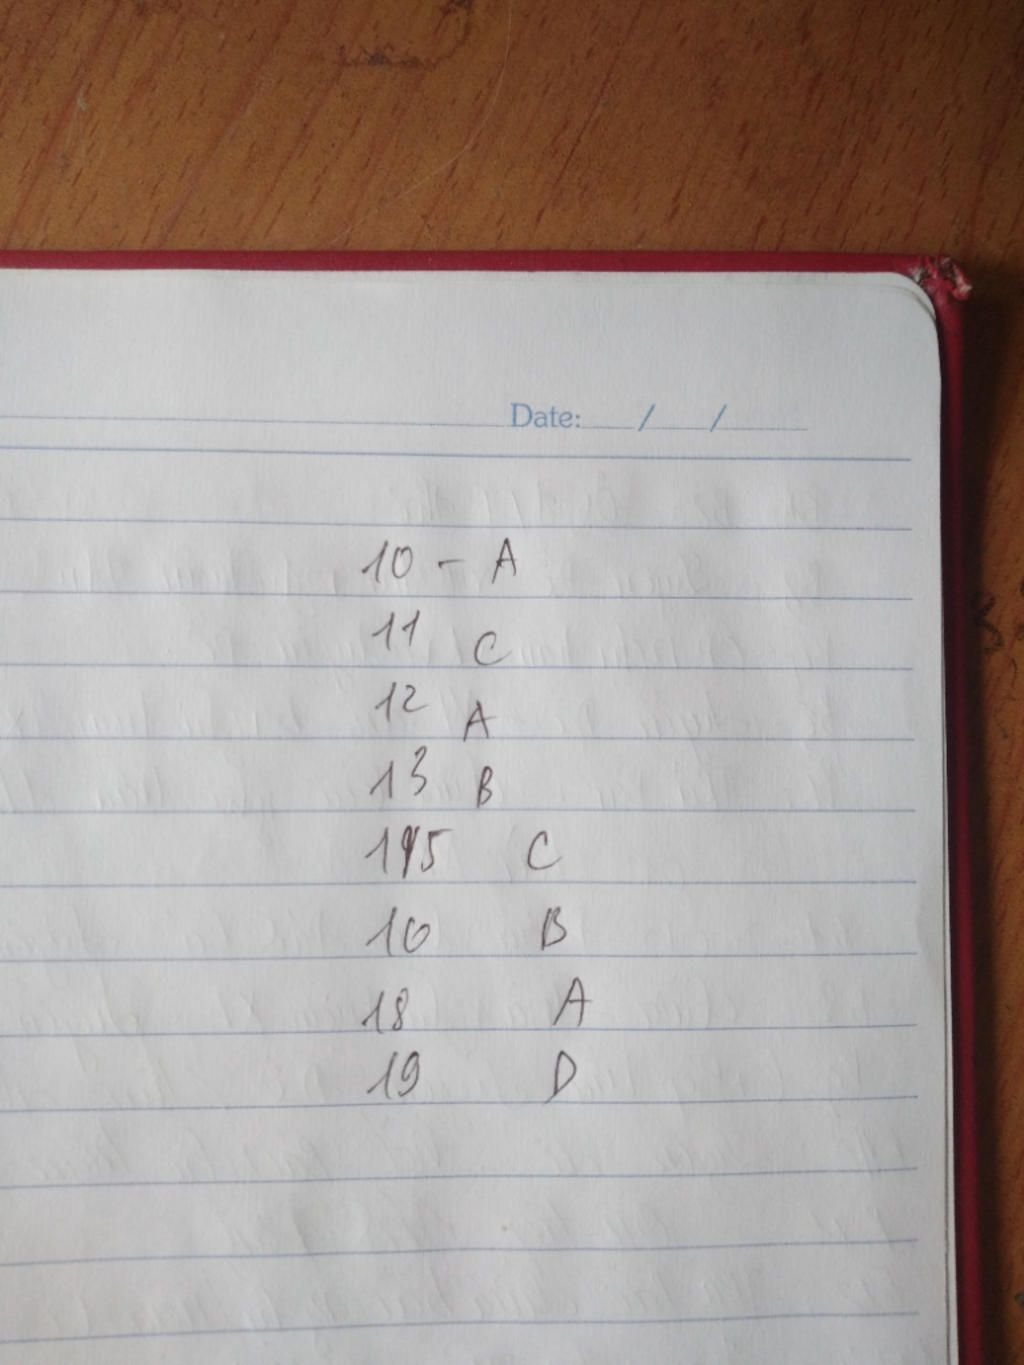 Date: / /
10 - A
11 C
12 A
13 B
15 C
16 B
18 A
19 D